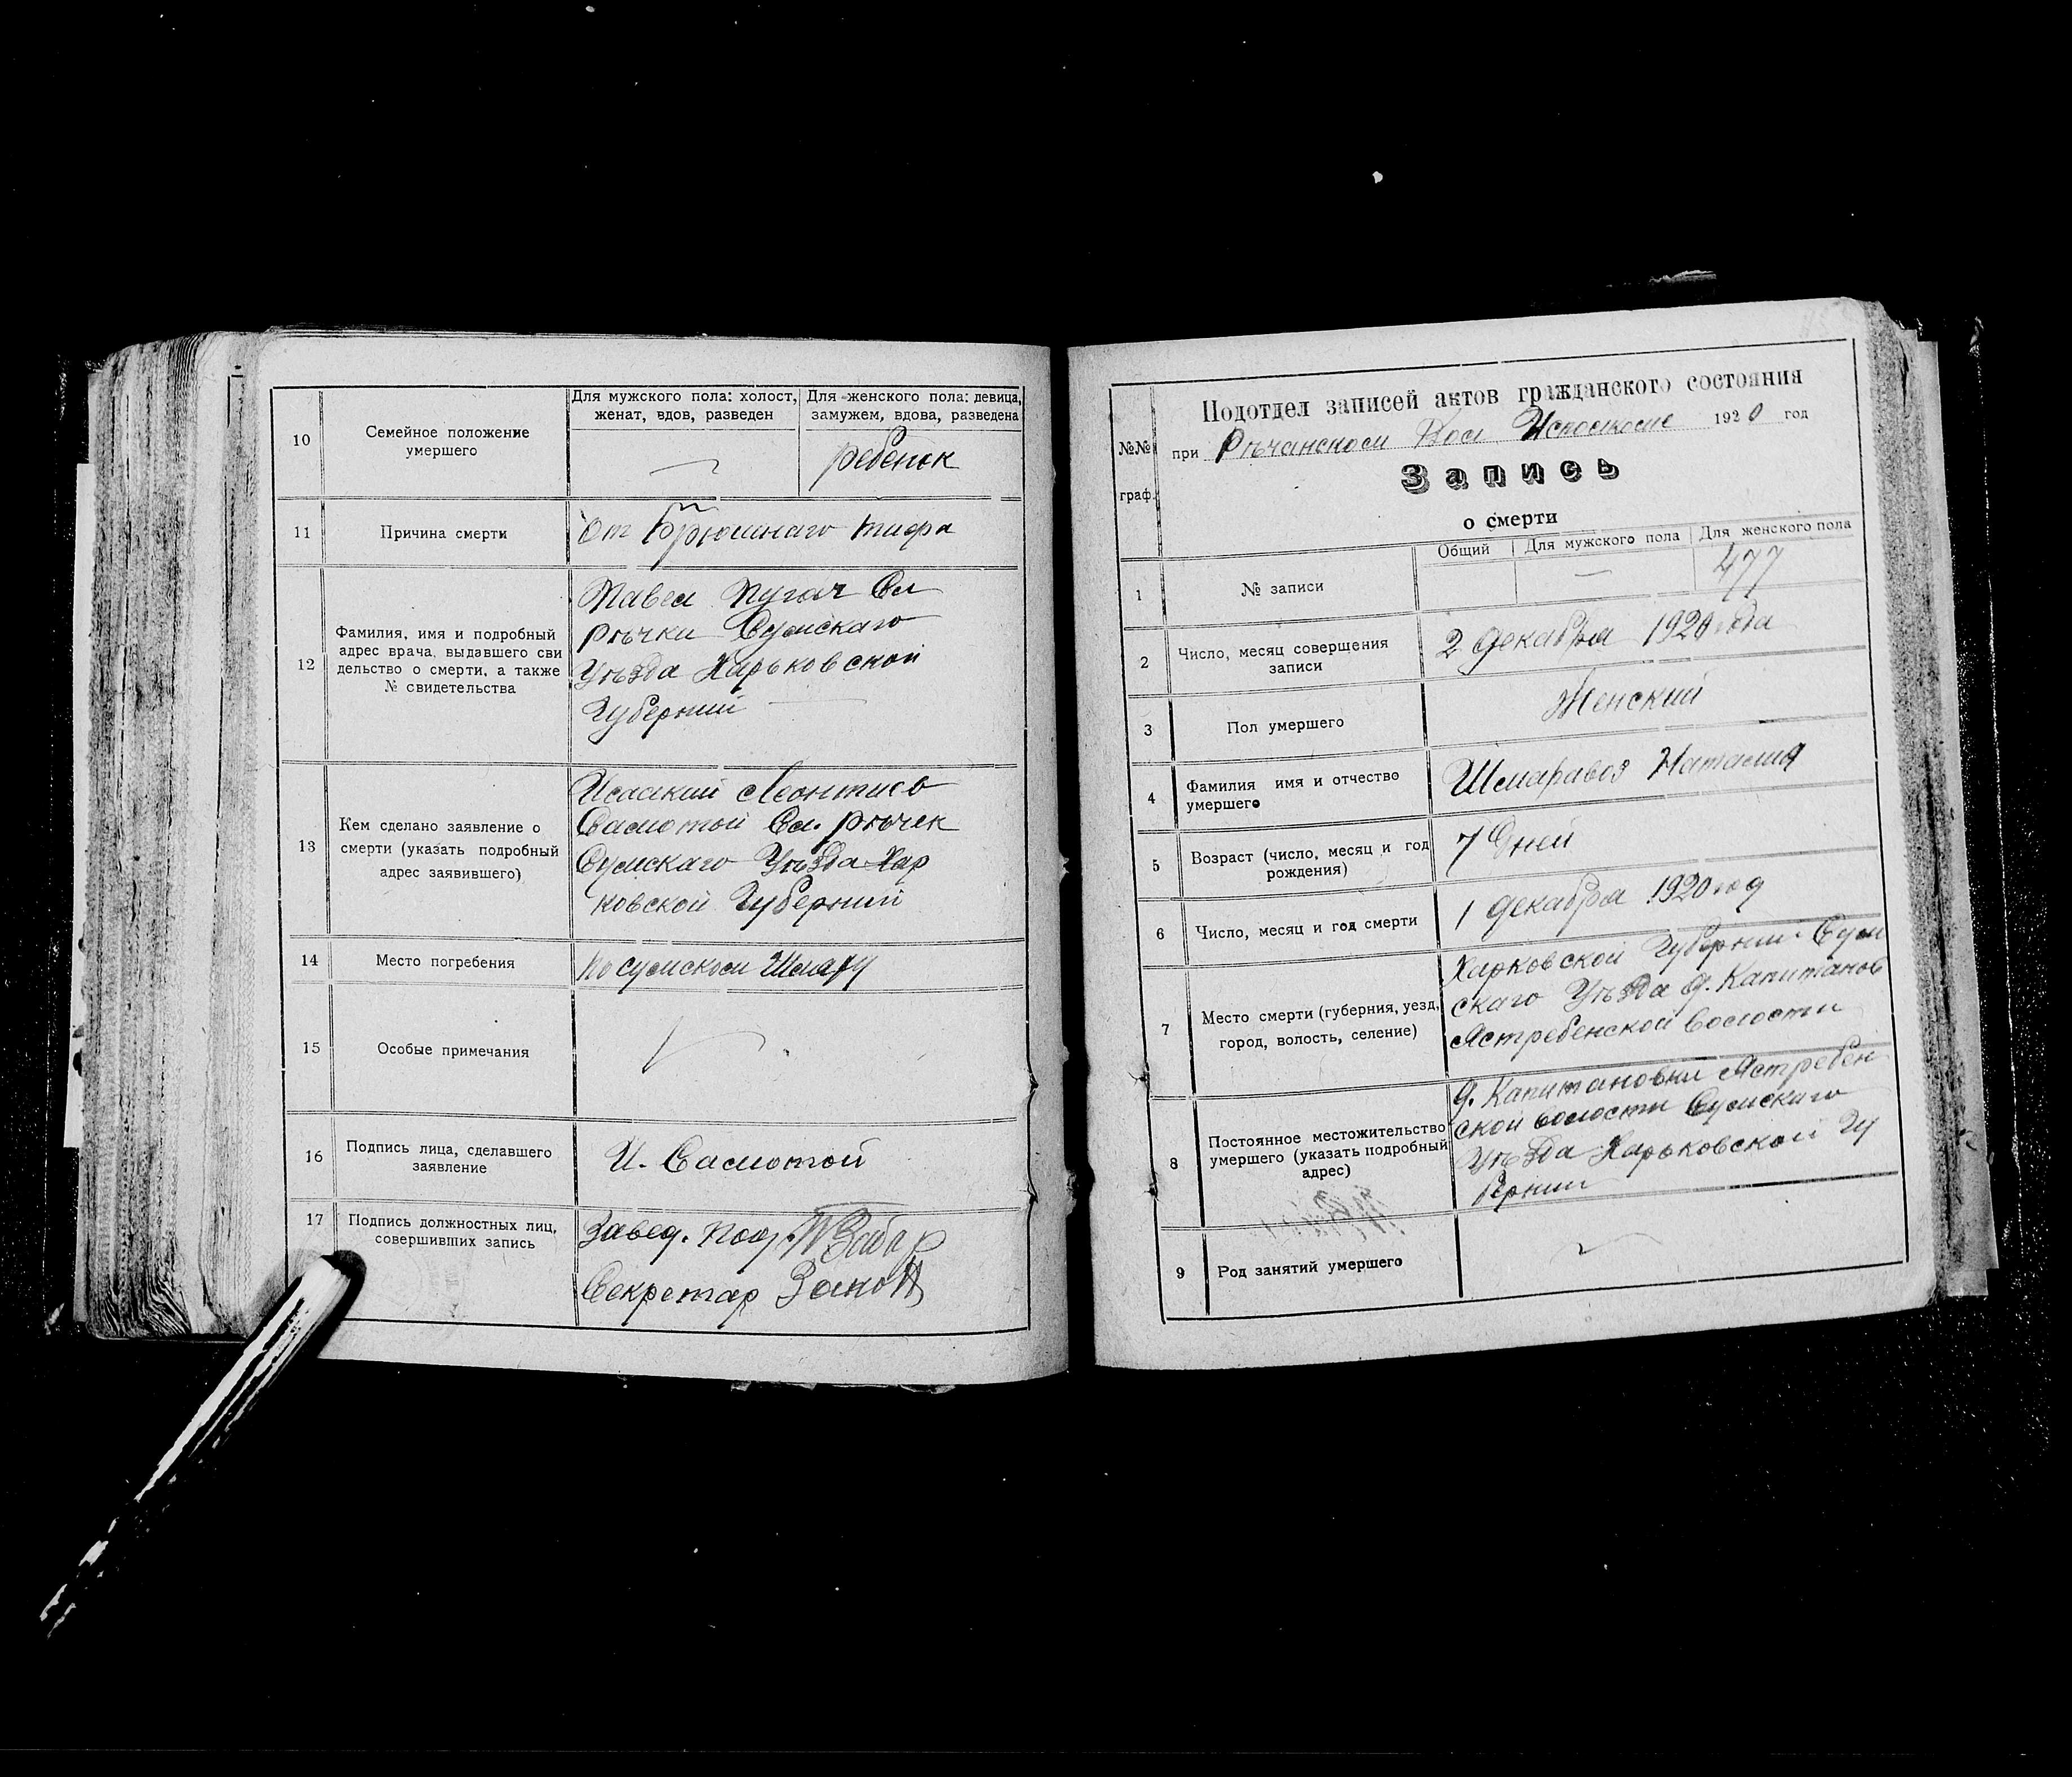 10
Семейное положение
умершего
Для мужского пола: холост,
женат, вдов, разведен
Для женского пола: девица,
замужем, вдова, разведена
ребенок
11
Причина смерти
От Брюшнаго тифа
12
Фамилия, имя и подробный
адрес врача, выдавшего сви
детельство о смерти, а также
№ свидетельства
Павел Пугач Сл
Рѣчки Сумскаго
Уѣзда Харьковской
Губернии
13
Кем сделано заявление о
смерти (указать подробный
адрес заявившего)
Исаакий Леонтиев
Самотой Сл. Рѣчек
Сумскаго Уѣзда Хар
ковской Губернии
14
Место погребения
15
Особые примечания
16
Подпись лица, сделавшего
заявление
И. Самотой
17
Подпись должностных лиц,
совершивших запись
Завед. Под.
Секретар
№№
граф.
Подотдел записей актов гражданского состояния
при Рѣчанском Вол Исполкоме 1920 год
Запись
о смерти
Общий
Для мужского пола
Для женского пола
1
№ записи
477
2
Число, месяц совершения
записи
2 декабря 1920 года
3
Пол умершего
Женский
4
Фамилия имя и отчество
умершего
Наталия
5
Возраст (число, месяц и год
рождения)
7 дней
6
Число, месяц и год смерти
1 декабря 1920 год
7
Место смерти (губерния, уезд,
город, волость, селение)
Харковской Губернии Сум
скаго Уѣзда д. Капитанов
Ястребенской волости
8
Постоянное местожительство
умершего (указать подробный
адрес)
д. Капитановки Ястребен
ской волости Сумскаго
Уѣзда Харьковской Гу
бернии
9
Род занятий умершего